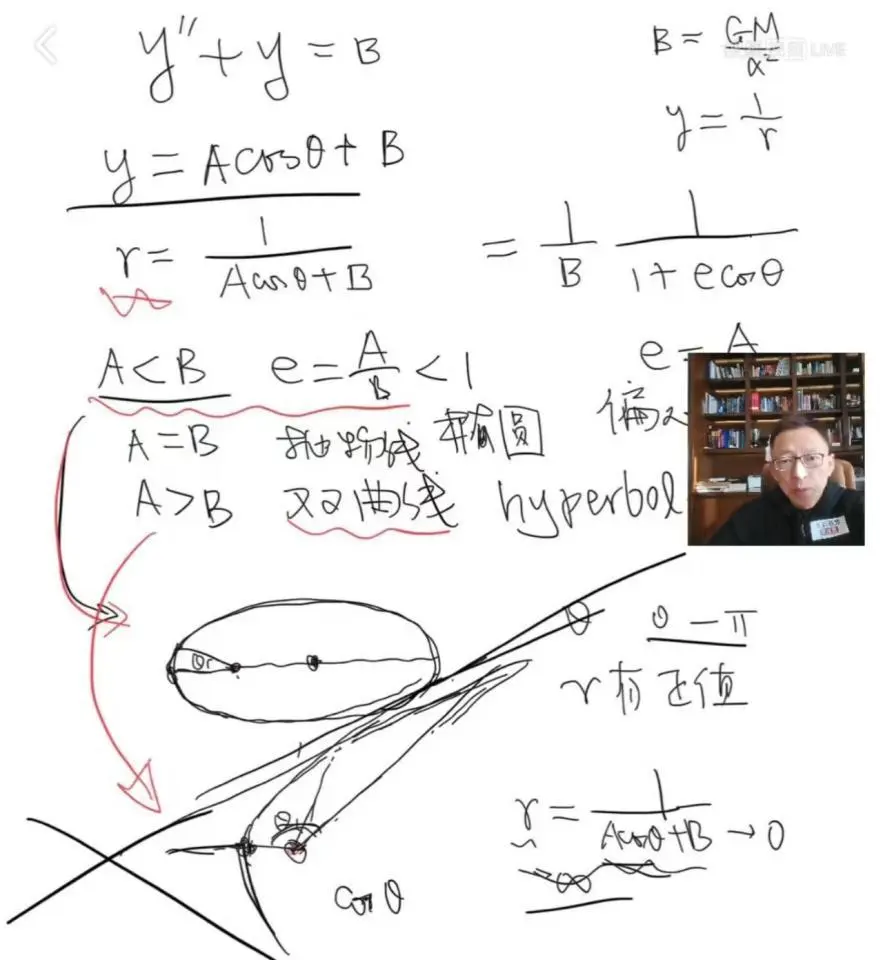 y'' + y = B
B = GM/α²
LIVE
y = 1/r
y = Acosθ + B
r = 1/(Acosθ + B) = 1/B 1/(1 + ecosθ)
A < B e = A/B < 1
e = A
偏心
A = B 抛物线 椭圆
A > B 双曲线 hyperbol
θ
θ r
0 – π
r 有正值
r = 1/(Acosθ + B) → 0
θ
→ ∞
cos θ